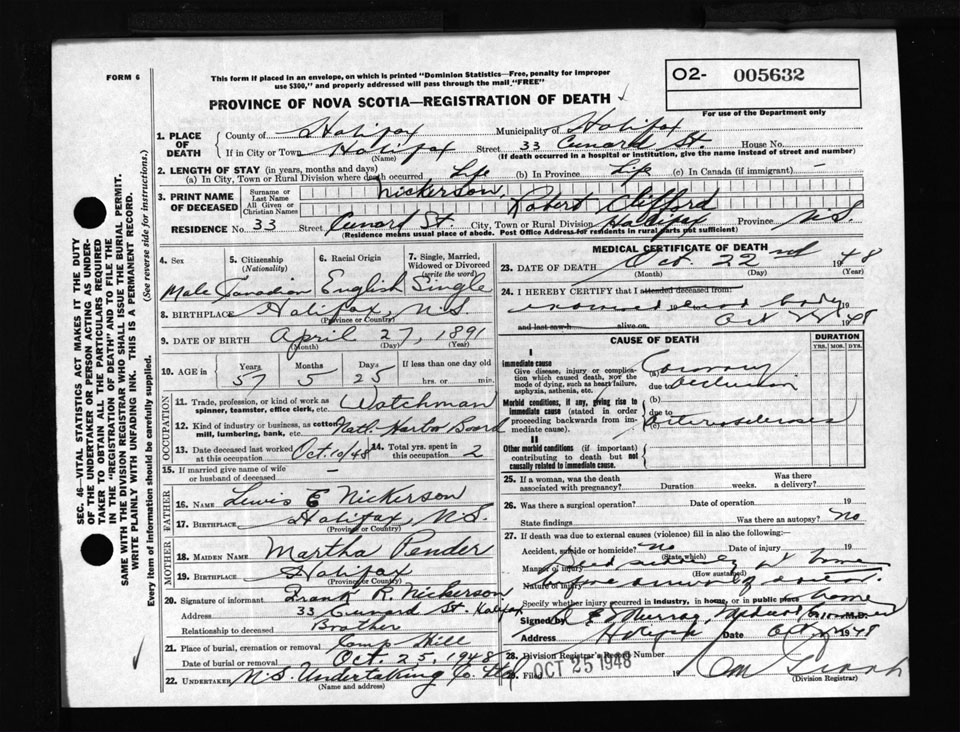 FORM 6
This form if placed in an envelope, on which is printed "Dominion Statistics—Free, penalty for improper
use $300," and properly addressed will pass through the mail "FREE"
O2- 005632
For use of the Department only
PROVINCE OF NOVA SCOTIA—REGISTRATION OF DEATH
SEC. 46—VITAL STATISTICS ACT MAKES IT THE DUTY
OF THE UNDERTAKER OR PERSON ACTING AS UNDER-
TAKER TO OBTAIN ALL THE PARTICULARS REQUIRED
IN THE "REGISTRATION OF DEATH" AND TO FILE THE
SAME WITH THE DIVISION REGISTRAR WHO SHALL ISSUE THE BURIAL PERMIT.
WRITE PLAINLY WITH UNFADING INK. THIS IS A PERMANENT RECORD.
Every item of information should be carefully supplied. (See reverse side for instructions.)
1. PLACE OF DEATH County of Halifax Municipality of Halifax
If in City or Town Halifax Street 33 Cunard St. House No.
(Name) (If death occurred in a hospital or institution, give the name instead of street and number)
2. LENGTH OF STAY (in years, months and days)
(a) In City, Town or Rural Division where death occurred Life (b) In Province Life (c) In Canada (if immigrant) -
3. PRINT NAME OF DECEASED Surname or Last Name Nickerson
All Given or Christian Names Robert Clifford
RESIDENCE No. 33 Street Cunard St. City, Town or Rural Division Halifax Province N.S.
(Residence means usual place of abode. Post Office Address for residents in rural parts not sufficient)
4. Sex 5. Citizenship (Nationality) 6. Racial Origin 7. Single, Married, Widowed or Divorced (write the word)
Male Canadian English Single
8. BIRTHPLACE Halifax, N.S.
(Province or Country)
9. DATE OF BIRTH April 27, 1891
(Month) (Day) (Year)
10. AGE in Years Months Days If less than one day old
57 5 25 hrs. or min.
OCCUPATION
11. Trade, profession, or kind of work as spinner, teamster, office clerk, etc. Watchman
12. Kind of industry or business, as cotton mill, lumbering, bank, etc. Natl. Harbor Board
13. Date deceased last worked at this occupation Oct. 10/48 14. Total yrs. spent in this occupation 2
15. If married give name of wife or husband of deceased -
FATHER
16. NAME Lewis E Nickerson
17. BIRTHPLACE Halifax, N.S.
(Province or Country)
MOTHER
18. MAIDEN NAME Martha Pender
19. BIRTHPLACE Halifax
(Province or Country)
20. Signature of informant Frank R. Nickerson
Address 33 Cunard St. Halifax
Relationship to deceased Brother
21. Place of burial, cremation or removal Camp Hill
Date of burial or removal Oct. 25, 1948
22. UNDERTAKER N.S. Undertaking Co. Ltd.
(Name and address)
MEDICAL CERTIFICATE OF DEATH
23. DATE OF DEATH Oct. 22nd 1948
(Month) (Day) (Year)
24. I HEREBY CERTIFY that I attended deceased from
19 body 19
and last saw h alive on Oct 1948
CAUSE OF DEATH DURATION
YRS. MOS. DYS.
I
Immediate cause (a) Coronary
Give disease, injury or complication which caused death, not the mode of dying, such as heart failure, asphyxia, asthenia, etc. due to occlusion
Morbid conditions, if any, giving rise to immediate cause (stated in order proceeding backwards from immediate cause). (b)
due to
(c) Arteriosclerosis
II
Other morbid conditions (if important) contributing to death but not causally related to immediate cause.
25. If a woman, was the death associated with pregnancy? Duration weeks. Was there a delivery?
26. Was there a surgical operation? Date of operation 19
State findings Was there an autopsy? No
27. If death was due to external causes (violence) fill in also the following:
Accident, suicide or homicide? no Date of injury 19
(State which)
Manner of injury died suddenly at home
(How sustained)
Nature of injury before arrival of doctor.
Specify whether injury occurred in industry, in home, or in public place home
Signed by Murray, Medical Examiner M.D.
Address Halifax Date Oct 1948
28. Division Registrar's Record Number
Filed OCT 25 1948
(Division Registrar)